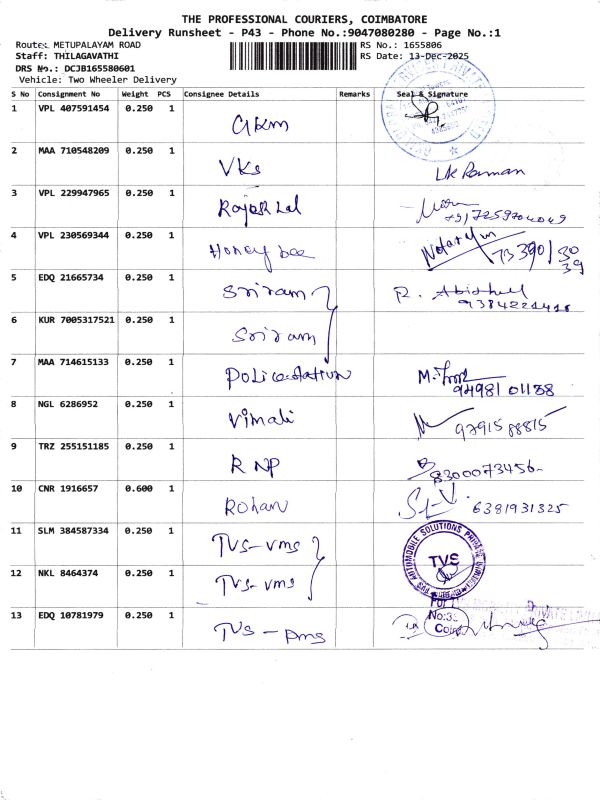 THE PROFESSIONAL COURIERS, COIMBATORE
Delivery Runsheet - P43 - Phone No.:9047080280 - Page No.:1
Route: METUPALAYAM ROAD RS No.: 1655806
Staff: THILAGAVATHI RS Date: 13-Dec-2025
DRS No.: DCJB165580601
Vehicle: Two Wheeler Delivery
S No Consignment No Weight PCS Consignee Details Remarks Seal & Signature
1 VPL 407591454 0.250 1 GKM
2 MAA 710548209 0.250 1 VKS
3 VPL 229947965 0.250 1 Rajesh Lal
4 VPL 230569344 0.250 1 Honey bee
5 EDQ 21665734 0.250 1 Sriram
6 KUR 7005317521 0.250 1 Sriram
7 MAA 714615133 0.250 1 Police station 94981 01188
8 NGL 6286952 0.250 1 Vimali
9 TRZ 255151185 0.250 1 RNP 8300073456
10 CNR 1916657 0.600 1 Rohan 6381931325
11 SLM 384587334 0.250 1 TVS-vms
TVS
12 NKL 8464374 0.250 1 TVS-vms
13 EDQ 10781979 0.250 1 TVS-pms